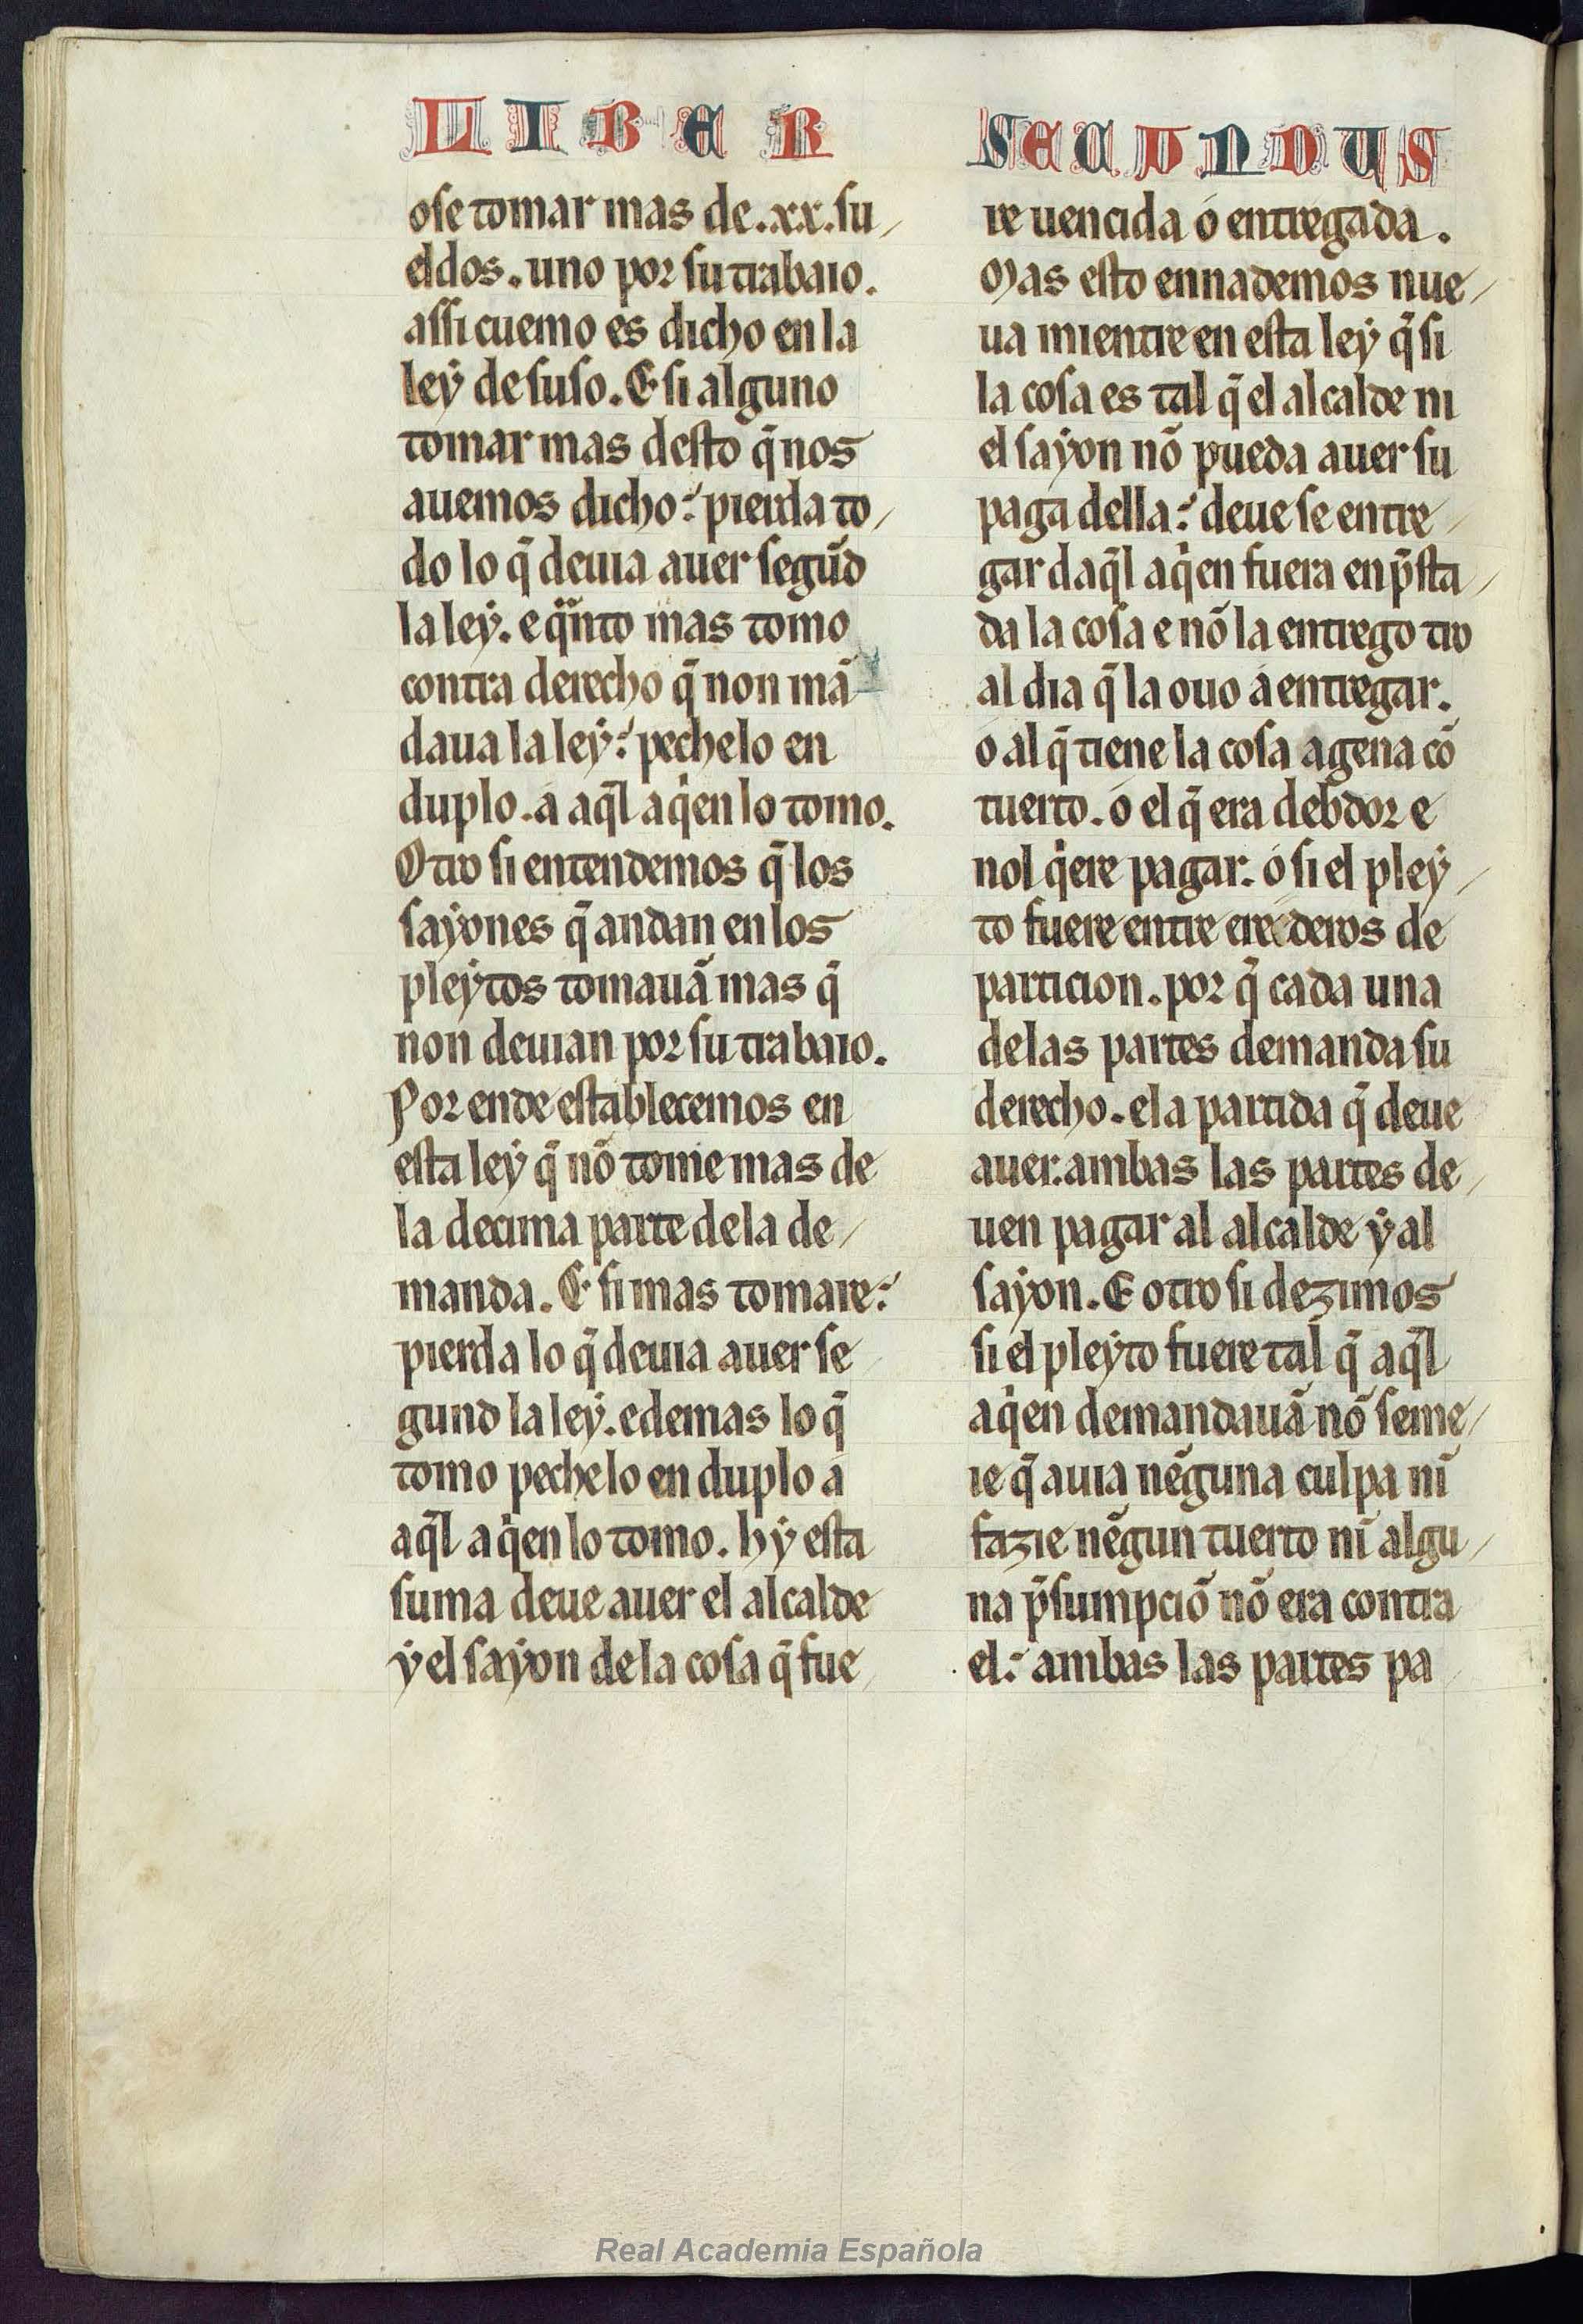 LIBER
ose tomar mas de .xx. su/
eldos. uno por su trabaio.
assi cuemo es dicho en la
ley de suso. E si alguno
tomar mas desto q̃ nos
auemos dicho: pierda to/
do lo q̃ deuia auer segũd
la ley. e q̈nto mas tomo
contra derecho q̃ non mã
daua la ley: pechelo en
duplo. á aq̃l aq̇en lo tomo.
Otro si entendemos q̃ los
sayones q̃ andan en los
pleytos tomauã mas q̃
non deuian por su trabaio.
Por ende establecemos en
esta ley q̃ nõ tome mas de
la decima parte de la de/
manda. E si mas tomare:
pierda lo q̃ deuia auer se
gund la ley. e demas lo q̃
tomo pechelo en duplo á
aq̃l aq̇en lo tomo. hy esta
suma deue auer el alcalde
y el sayon de la cosa q̃ fue
SECUNDUS
re uencida ó entregada.
Mas esto ennademos nue/
ua mientre en esta ley q̃ si
la cosa es tal q̃ el alcalde ni
el sayon nõ pueda auer su
paga della: deue se entre/
gar daq̃l aq̇en fuera enp̃sta/
da la cosa e nõ la entrego tro
al dia q̃ la ouo á entregar.
o al q̃ tiene la cosa agena cõ
tuerto. ó el q̃ era debdor e
nol q̇ere pagar. ó si el pley/
to fuere entre erederos de
particion. por q̃ cada una
delas partes demanda su
derecho. e la partida q̃ deue
auer: ambas las partes de/
uen pagar al alcalde y al
sayon. E otro si dezimos
si el pleyto fuere tal q̃ aq̃l
aq̇en demandauã nõ seme/
ie q̃ auia nẽguna culpa nĩ
fazie nẽgun tuerto nĩ algu/
na p̃sumpciõ nõ era contra
el: ambas las partes pa
Real Academia Española